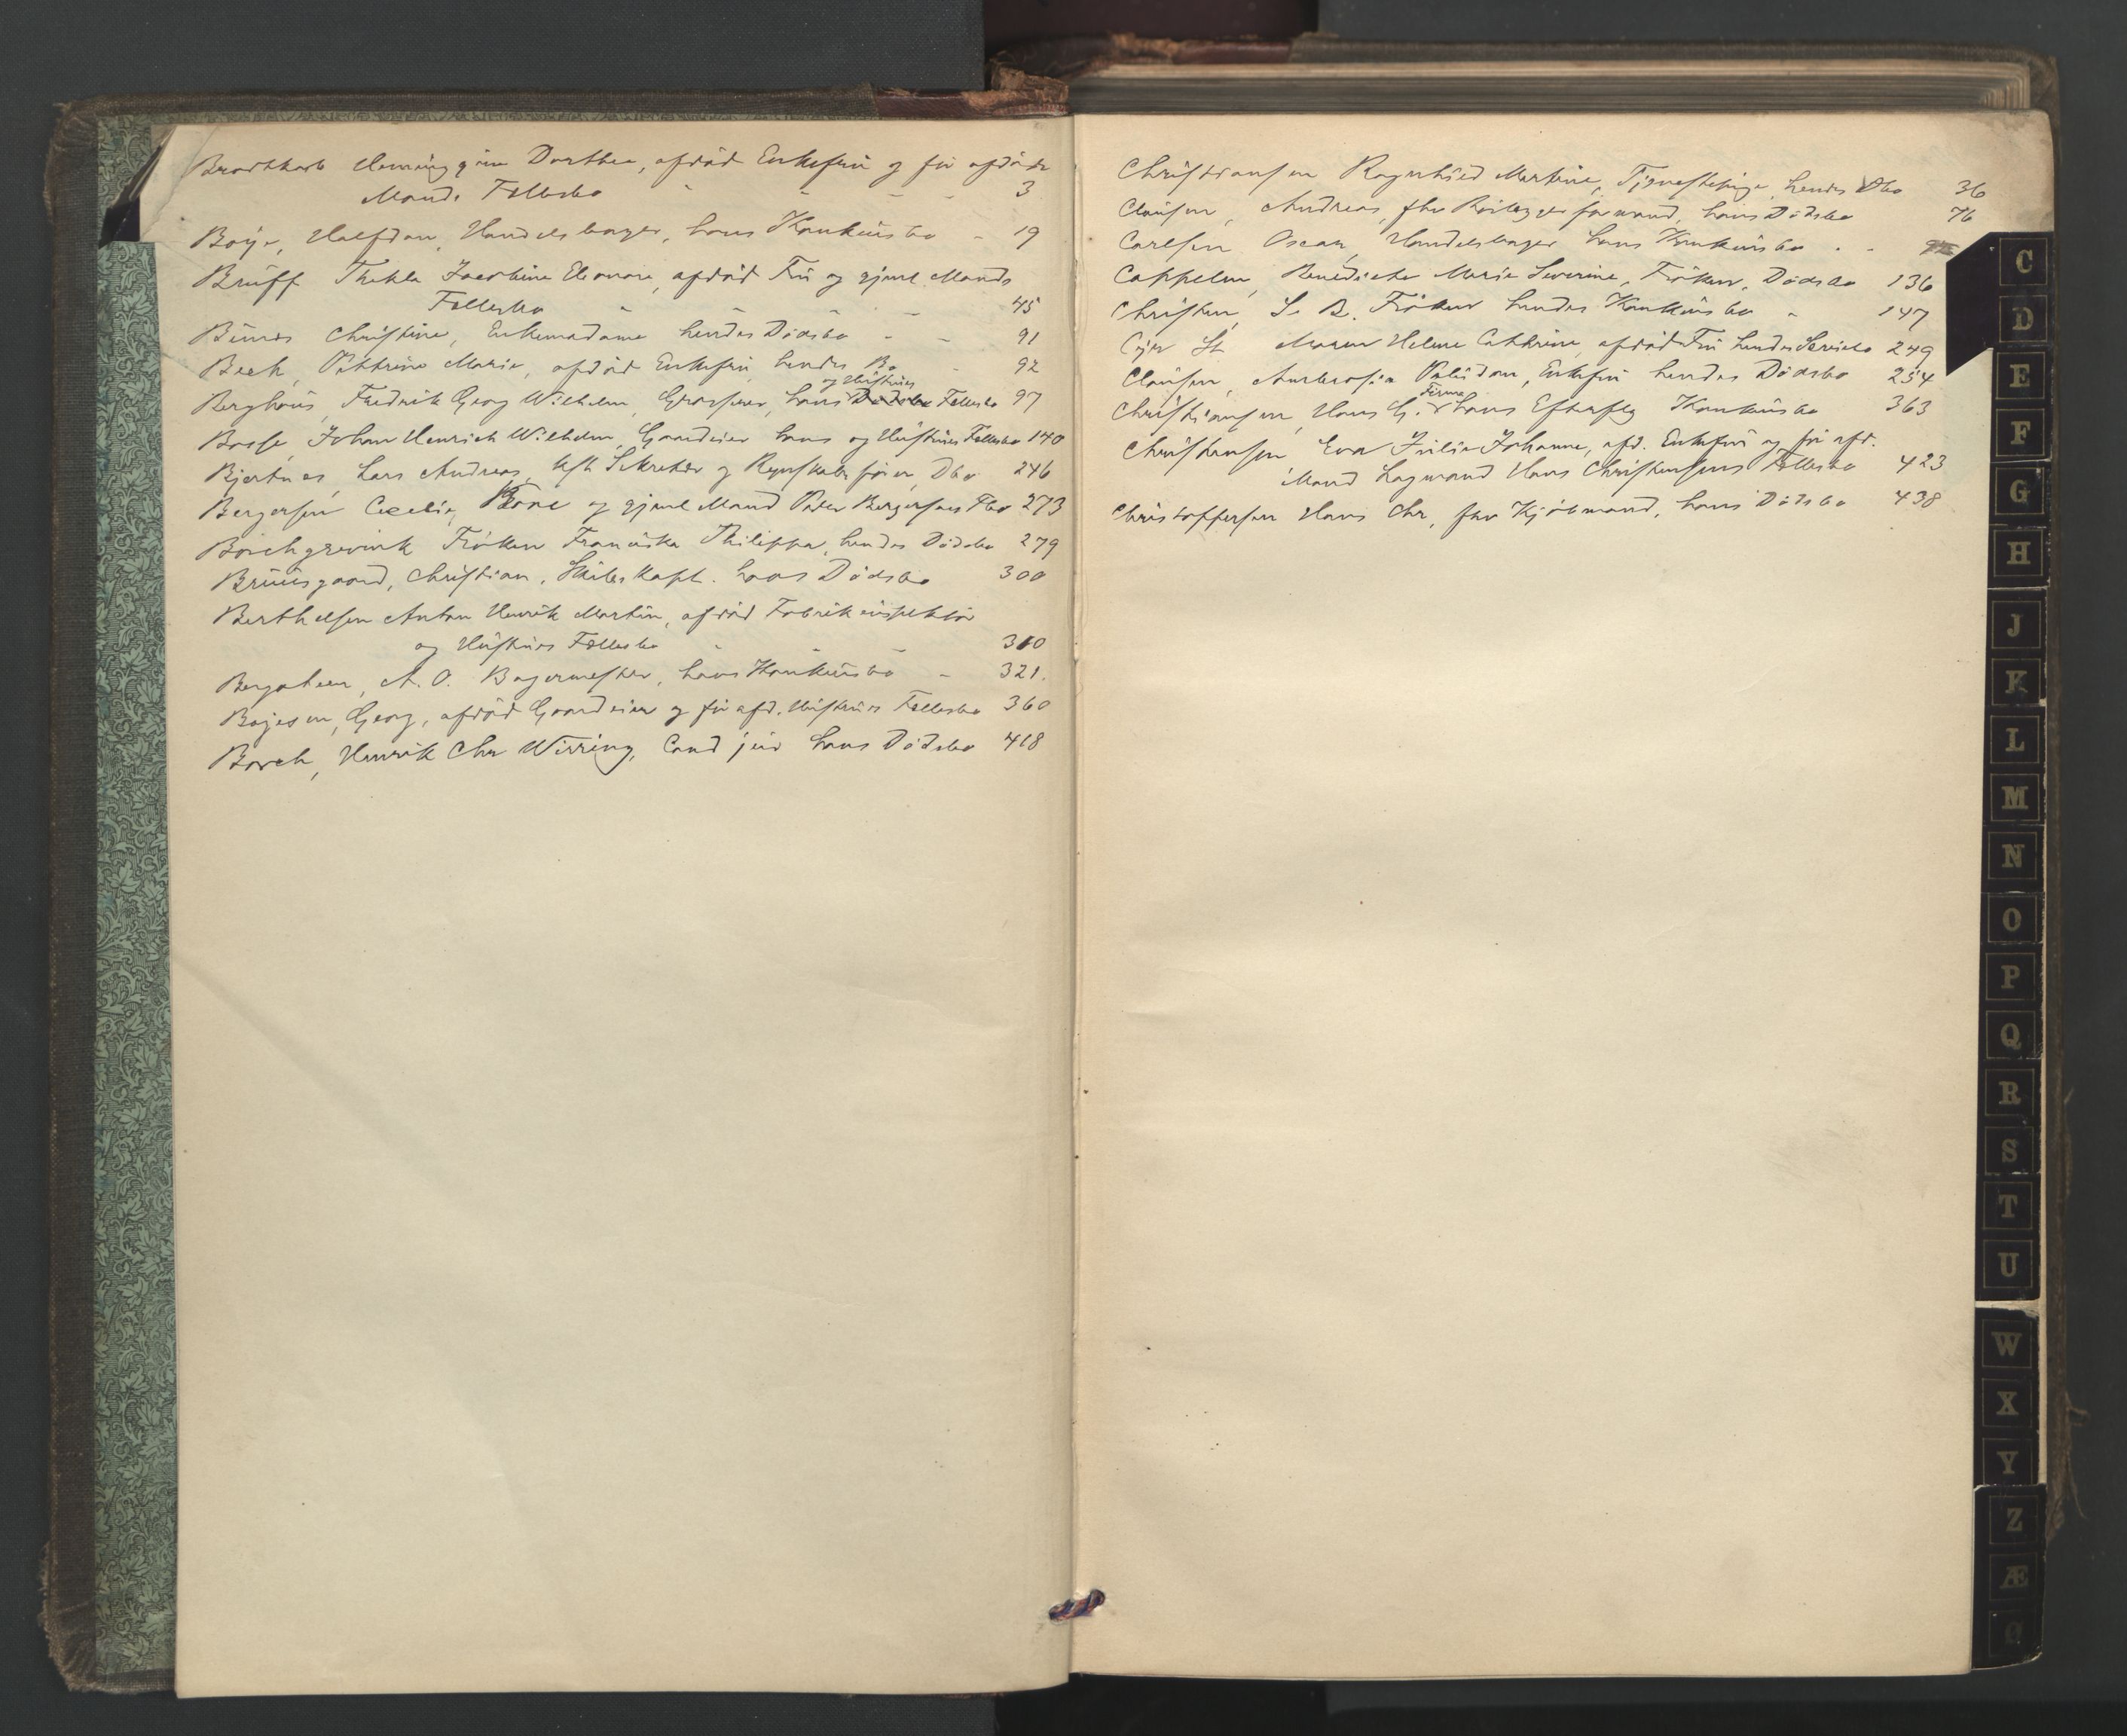 Bradtkorb Henninggine Dorthea, afdød Enkefru og før afdøde
Mands Fællesbo - - - 3
Boye, Halfdan, Handelsbager, hans Konkursbo - 19
Brüff Thekla Jacobine Eleonore, afdød Fru og gjenl Mands
Fællesbo - - - 45
Christine, Enkemadame hendes Dødsbo - - 91
Beck, Marie, afdød Enkefru, hendes Bo - 92
og Hustrues
Berghaus, Fredrik Georg Wilhelm, Grosserer, hans Dødsbo Fællesbo 97
Basse, Johan Henrich Wilhelm, Gaardeier hans og Hustrues Fællesbo 140
Bjertnæs, Lars Andreas, Sekretær og Regnskabsfører, Dbo 246
Bergersen Cecelie, Kone og gjenl Mand Peder Bergersens Fbo 273
Borchgrevink Frøken Franciska Philippa, hendes Dødsbo 279
Bruusgaard, Christian, Skibskapt. hans Dødsbo 300
Berthelsen Anton Henrik Martin, afdød Fabrikinspektør
og Hustrues Fællesbo - - 310
A. O. Bagermester, hans Konkursbo - 321.
Bojesen, Georg, afdød Gaardeier og før afd. Hustrues Fællesbo 360
Borch, Henrik Chr Wirring, Cand jur hans Dødsbo 418
Christiansen Ragnhild Martine, Tjenestepige, hendes Dbo 36
Clausen, Andreas, fhv formand, hans Dødsbo 76
Carlsen, Oscar, Handelsbager hans Konkursbo . -
Cappelen, Benedicte Marie Severine, Frøken, Dødsbo 136
Christen, S. B. Frøken hendes Konkursbo - 147
Cyr St. Maren Helene Cathrine, afdød Fru hendes Særeiebo 249
Clausen, Ambrosia Paludan, Enkefru hendes Dødsbo 254
Firma
Christiansen, Hans G. & hans Efterflg Konkursbo 363
Christensen Eva Julie Johanne, afd. Enkefru og før afd.
Mand Lagmand Hans Christensens Fællesbo 423
Christoffersen Hans Chr, fhv Kjøbmand, hans Dødsbo 438
C
D
E
F
G
H
J
K
L
M
N
O
P
Q
R
S
T
U
W
X
Y
Z
Æ
Ø